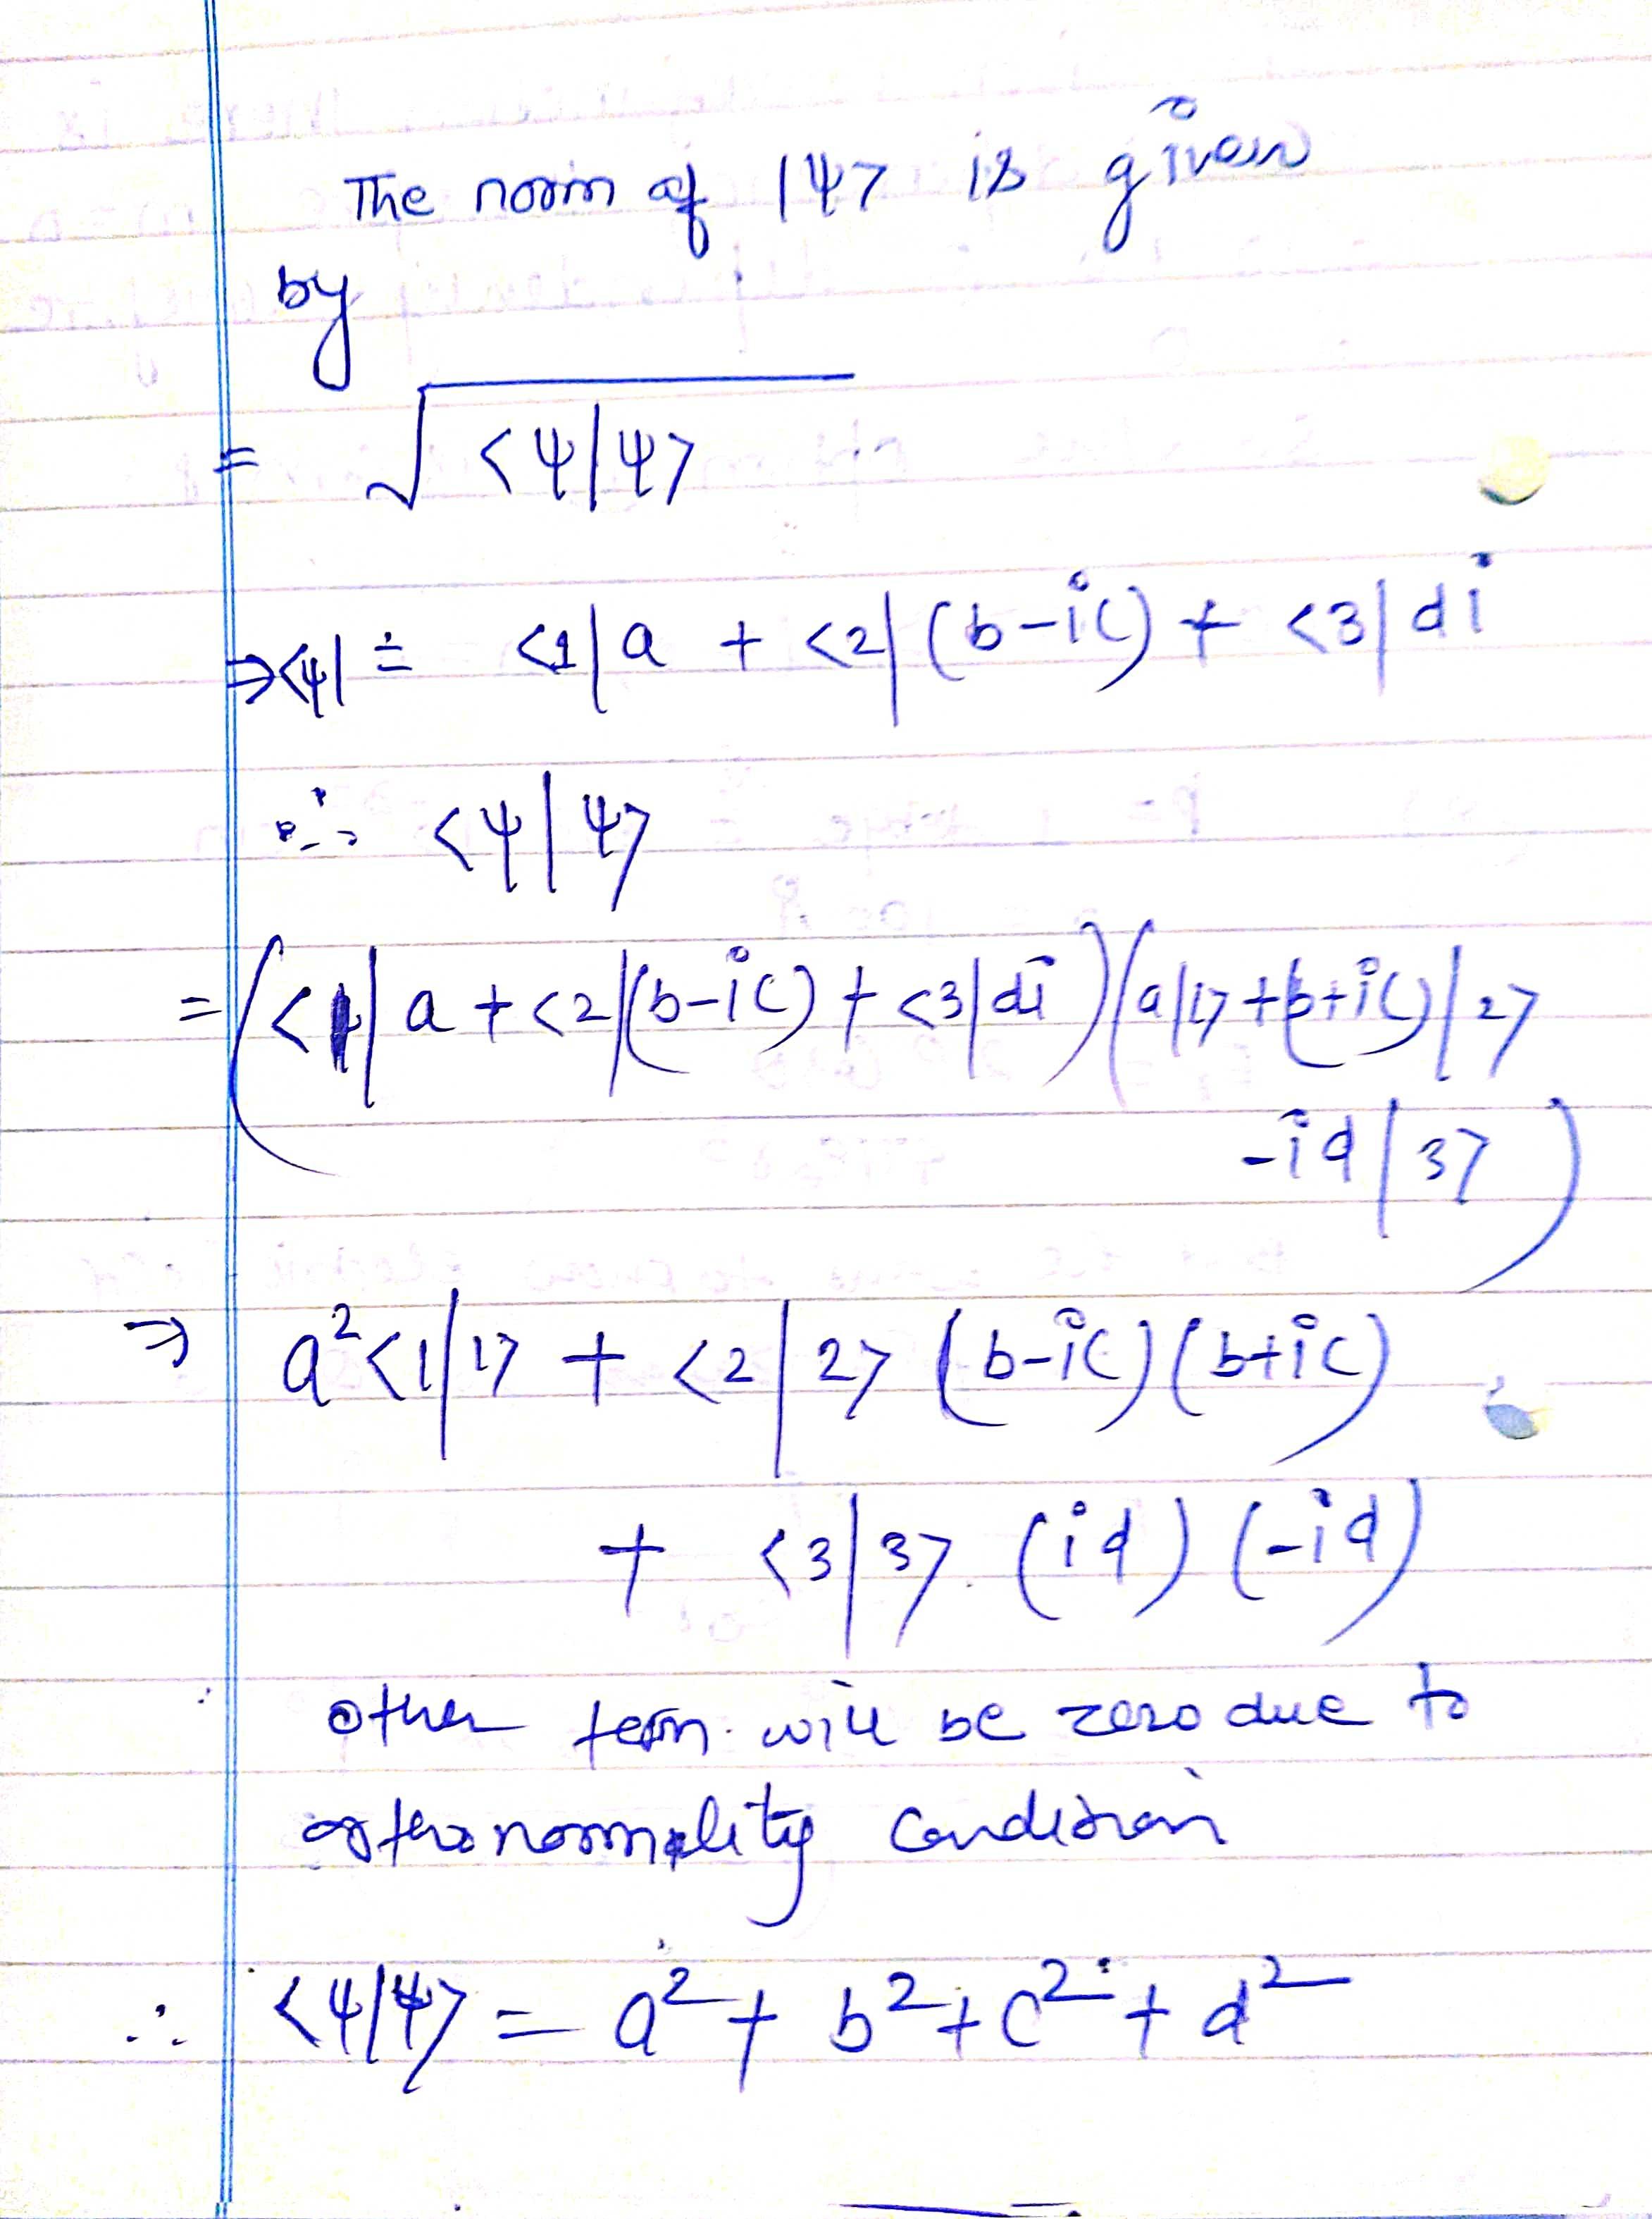 The norm of |ψ> is given
by
= √<ψ|ψ>
⇒<ψ| = <1|a + <2|(b-ic) + <3|di
∴ <ψ|ψ>
= (<1|a + <2|(b-ic) + <3|di)(a|1> + (b+ic)|2>
-id|3>)
⇒ a²<1|1> + <2|2> (b-ic)(b+ic)
+ <3|3> (id)(-id)
other term will be zero due to
orthonormality condition
∴ <ψ|ψ> = a² + b² + c² + d²